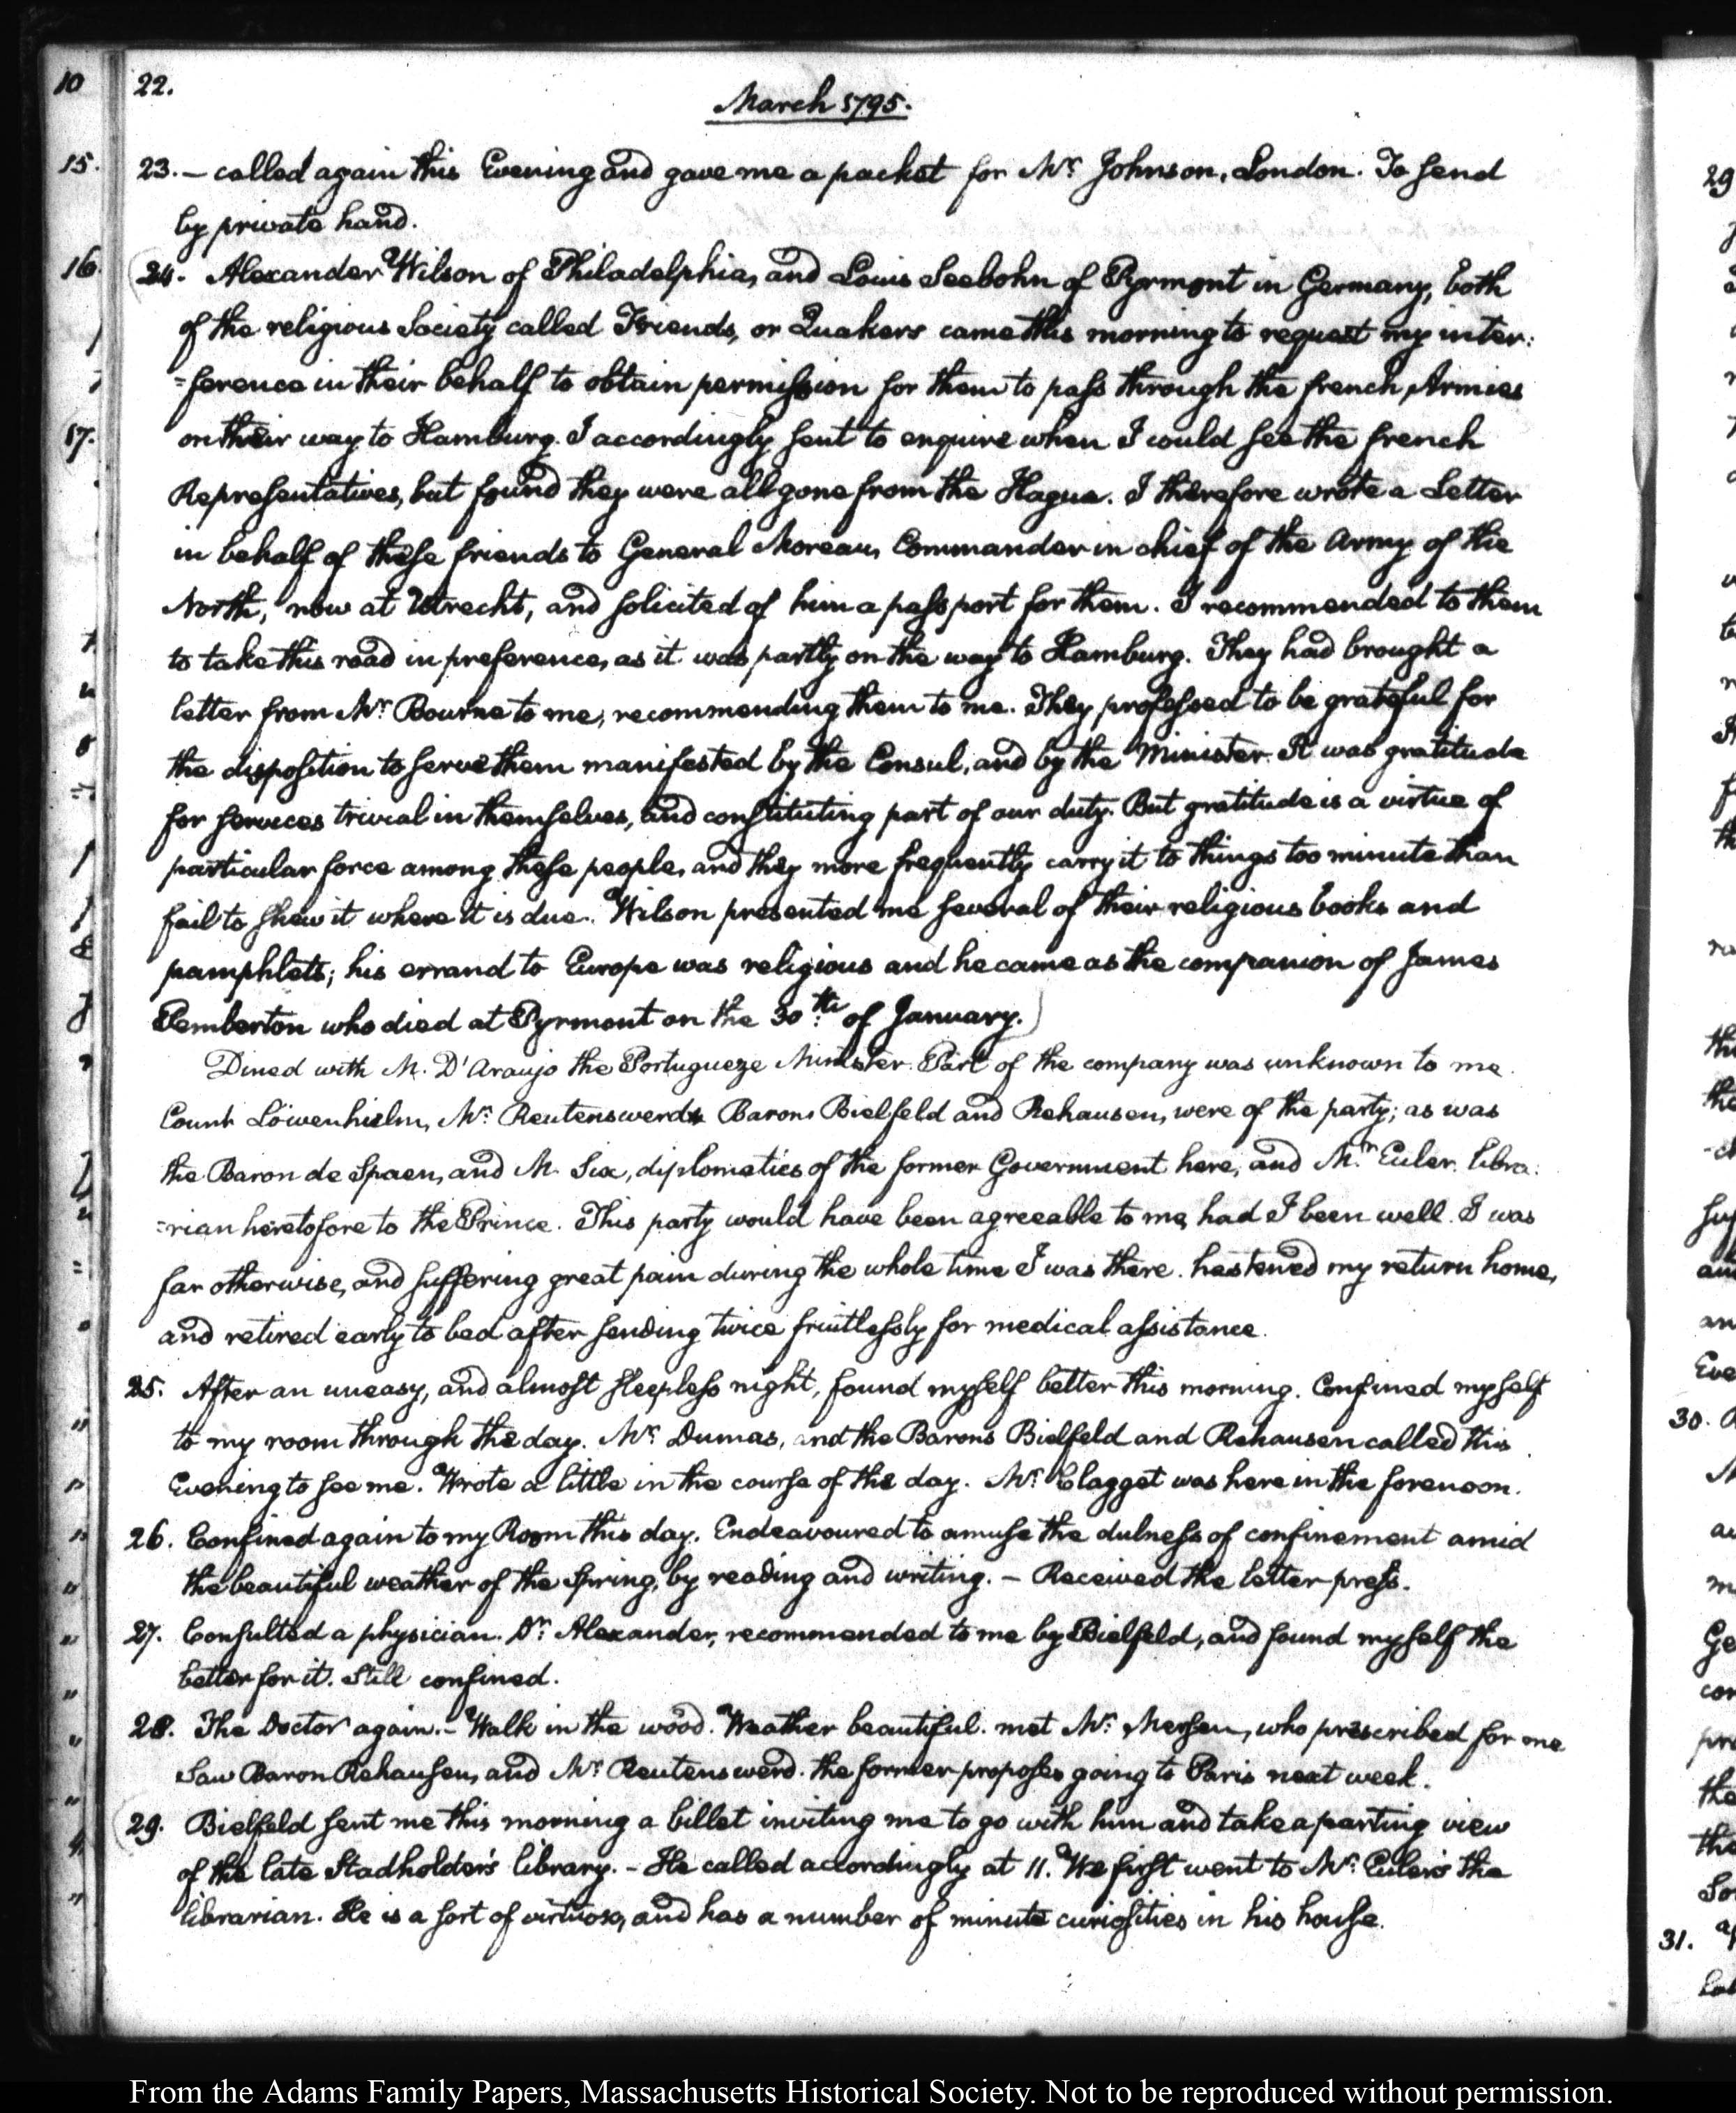 10
22.
March 1795.
15.
23. – called again this Evening and gave me a packet for Mr. Johnson, London. To send
by private hand.
16.
24. Alexander Wilson of Philadelphia, and Louis Seebohn of Pyrmont in Germany, both
of the religious Society called Friends, or Quakers came this morning to request my inter:
=ference in their behalf to obtain permission for them to pass through the french Armies
17.
on their way to Hamburg. I accordingly sent to enquire when I could see the french
Representatives, but found they were all gone from the Hague. I therefore wrote a Letter
in behalf of these friends to General Moreau, Commander in chief of the Army of the
North, now at Utrecht, and solicited of him a passport for them. I recommended to them
to take this road in preference, as it was partly on the way to Hamburg. They had brought a
letter from Mr. Bourne to me, recommending them to me. They professed to be grateful for
the disposition to serve them manifested by the Consul, and by the Minister. It was gratitude
for services trivial in themselves, and constituting part of our duty. But gratitude is a virtue of
particular force among these people, and they more frequently carry it to things too minute than
fail to shew it where it is due. Wilson presented me several of their religious books and
pamphlets; his errand to Europe was religious and he came as the companion of James
Pemberton who died at Pyrmont on the 30th. of January.)
Dined with M. D'Araujo the Portugueze Minister. Part of the company was unknown to me.
Count Löwenhielm, Mr. Reutenswerd, Barons Bielfeld and Rehausen, were of the party; as was
the Baron de Spaen, and M. Six, diplomatics of the former Government here, and Mr. Euler. libra:
=rian heretofore to the Prince. This party would have been agreeable to me, had I been well. I was
far otherwise, and suffering great pain during the whole time I was there. hastened my return home,
and retired early to bed after sending twice fruitlessly for medical assistance.
25. After an uneasy, and almost sleepless night, found myself better this morning. Confined myself
to my room through the day. Mr. Dumas, and the Barons Bielfeld and Rehausen called this
Evening to see me. Wrote a little in the course of the day. Mr. Clagget was here in the forenoon.
26. Confined again to my Room this day. Endeavoured to amuse the dulness of confinement amid
the beautiful weather of the Spring, by reading and writing. – Received the letter press.
27. Consulted a physician. Dr. Alexander, recommended to me by Bielfeld, and found myself the
better for it. Still confined.
28. The Doctor again. – Walk in the wood. Weather beautiful. met Mr. Mersen, who prescribed for me
Saw Baron Rehausen, and Mr. Reutenswerd. the former proposes going to Paris next week.
29. Bielfeld sent me this morning a billet inviting me to go with him and take a parting view
of the late Stadholder's library. – He called accordingly at 11. We first went to Mr. Euler's the
librarian. He is a sort of virtuoso, and has a number of minute curiosities in his house.
29
30.
31.
From the Adams Family Papers, Massachusetts Historical Society. Not to be reproduced without permission.